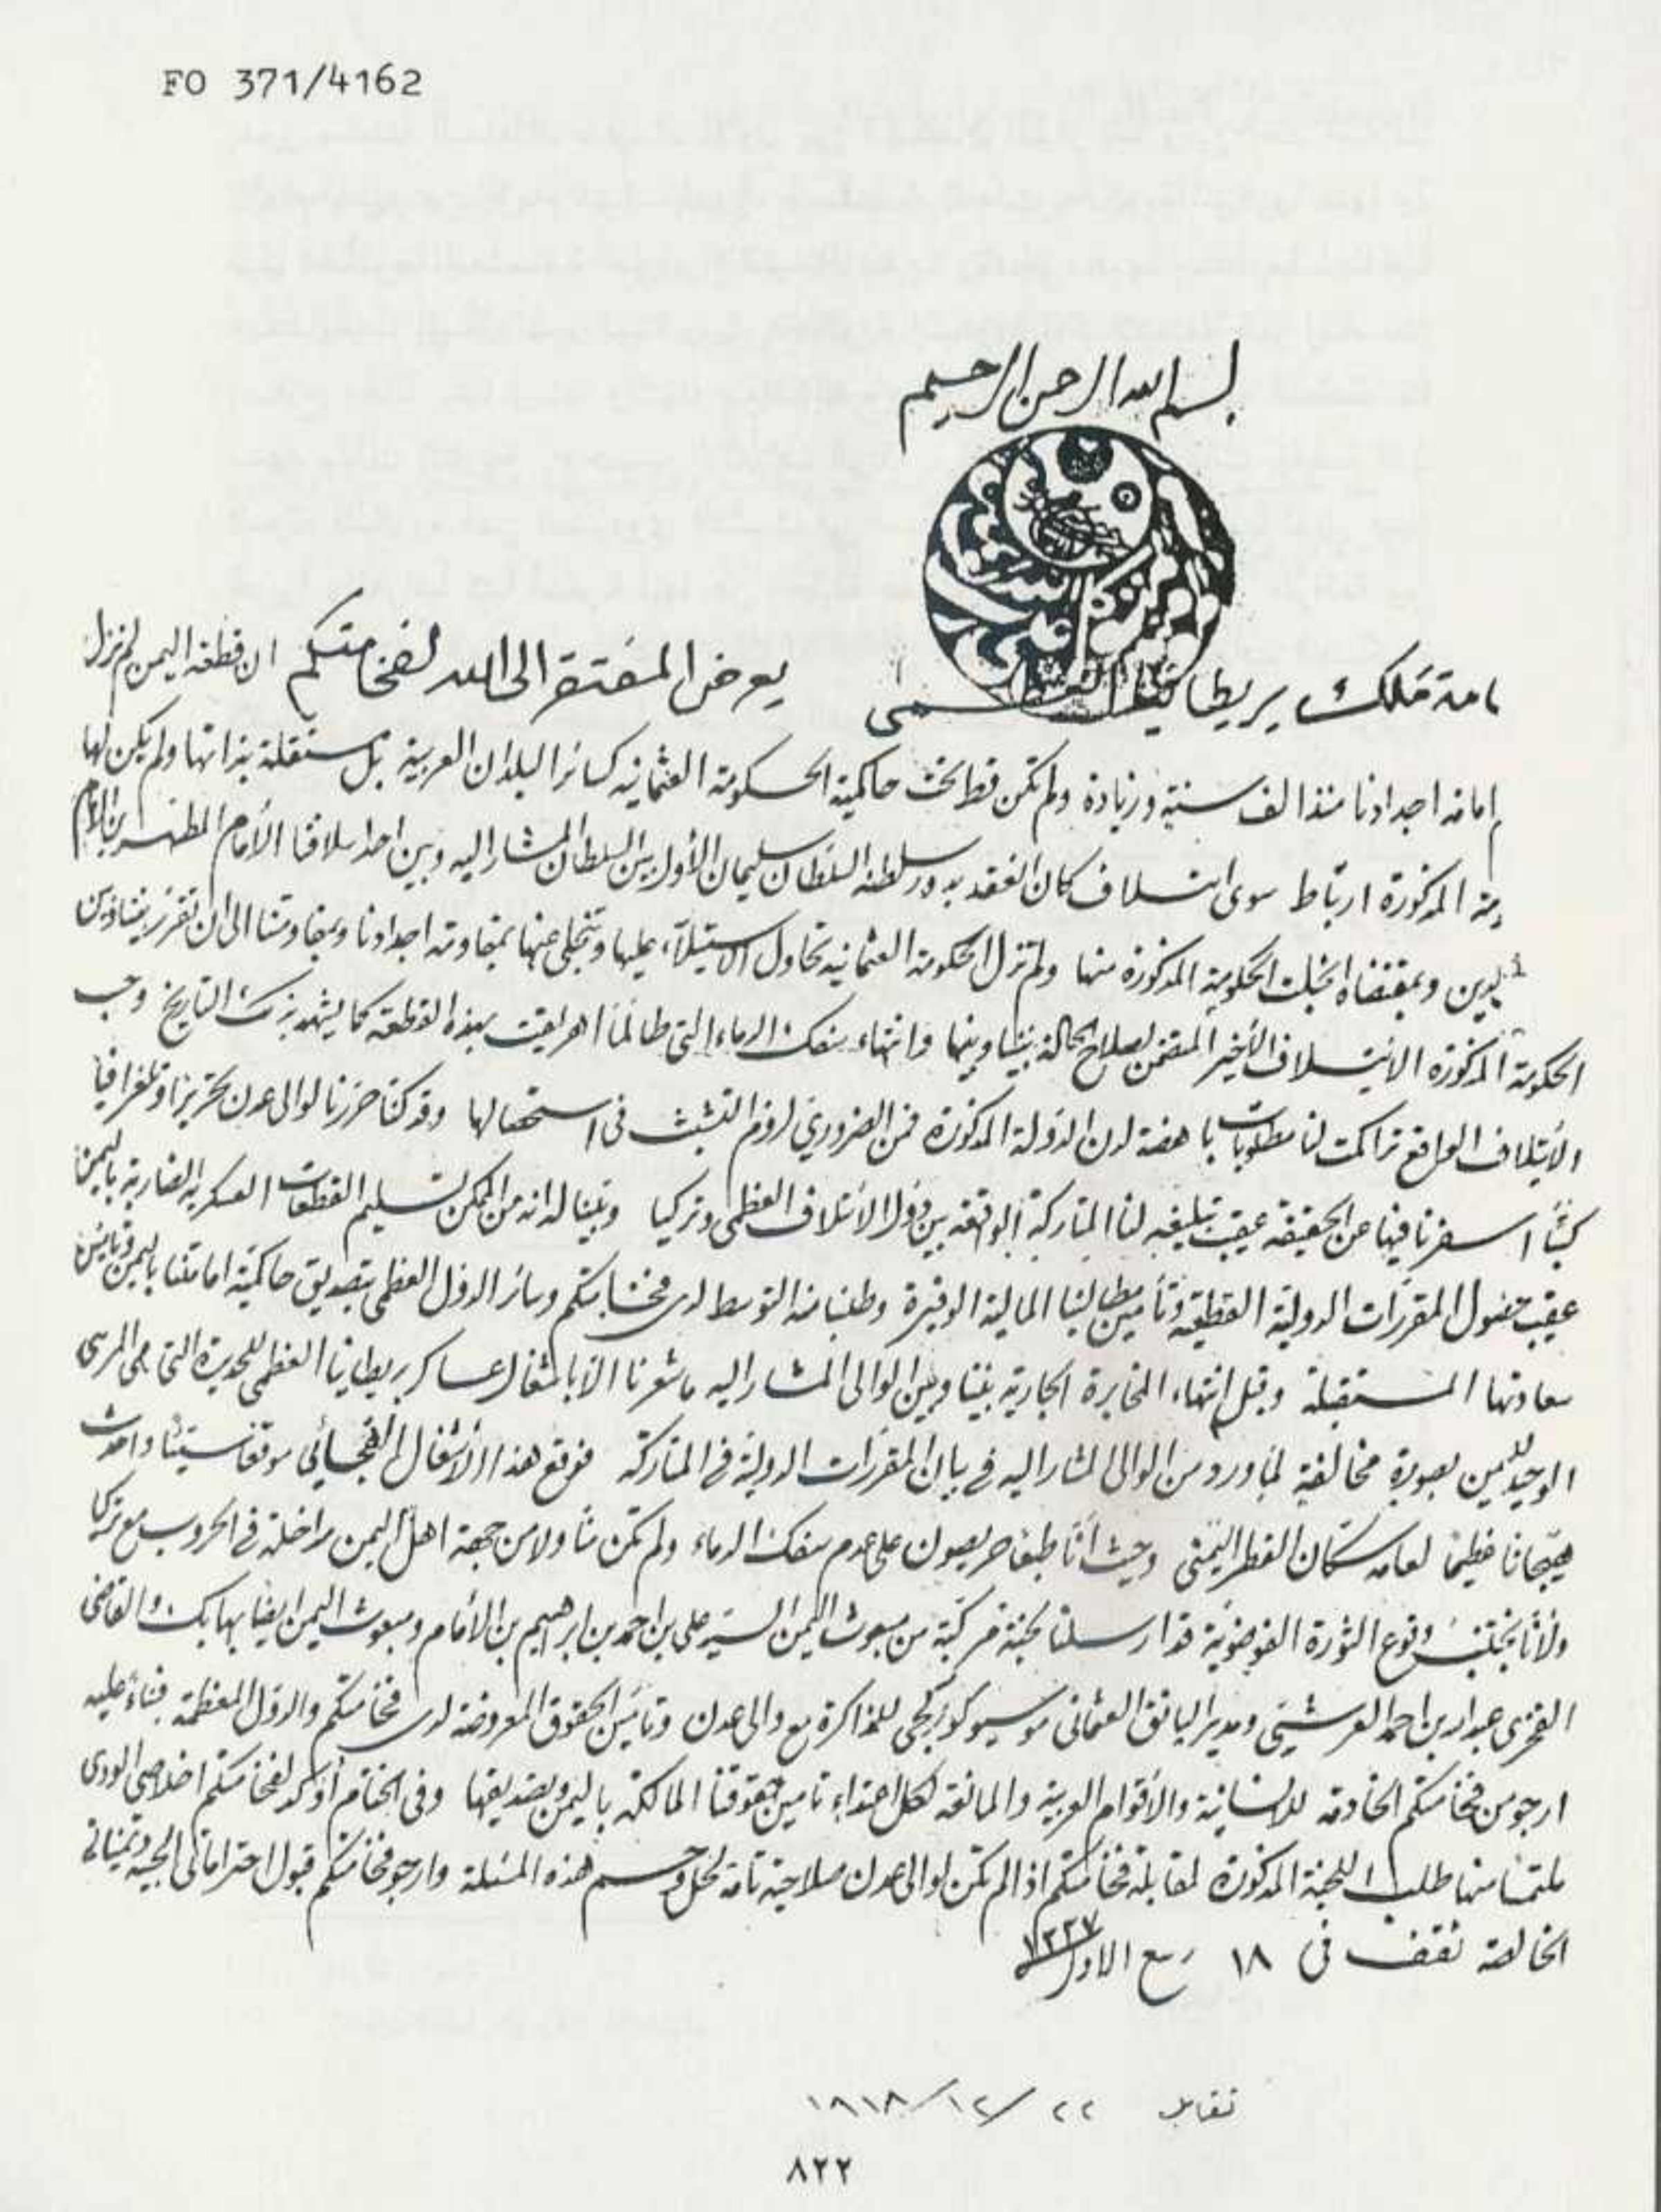 FO 371/4162
بسم الله الرحمن الرحيم
امة ملك بريطانيا العظمى يعرض المفتقر الى الله لفخامتكم ان قطعة اليمن لم تزل
امامة اجدادنا منذ الف سنة وزيادة ولم تكن قط تحت حاكمية الحكومة العثمانية كسائر البلدان العربية بل مستقلة بذاتها ولم يكن لها
المذكورة ارتباط سوى ائتلاف كان انعقد بدور سلطنة السلطان سليمان الأول بين السلطان المشار اليه وبين احد اسلافنا الأمام المطهر بن الامام
الدين وبمقتضاه انجلت الحكومة المذكورة منها ولم تزل الحكومة العثمانية تحاول الاستيلاء عليها وتنجلي عنها بمقاومة اجدادنا وبمقاومتنا الى ان تقرر بيننا وبين
الحكومة المذكورة الائتلاف الأخير المتضمن اصلاح الحالة بيننا وبينها وانتهاء سفك الدماء التي طالما اهريقت بهذه القطعة كما يشهد بذلك التاريخ وحسب
الائتلاف الواقع تراكمت لنا مطلوبات باهضة لدى الدولة المذكورة فمن الضروري لزوم التشبث في استحصالها وقد كنا حررنا لوالى عدن تحريرا وتلغرافيا
كتبا اسفرنا فيها عن الحقيقة عقيب تبليغه لنا المتاركة الواقعة بين دول الائتلاف العظمى وتركيا وبينا له انه من الممكن تسليم القطعات العسكرية باليمن
عقيب حصول المقررات الدولية القطعية وتأمين مطالبنا المالية الوفيرة وطلبنا منه التوسط لدى فخامتكم وسائر الدول العظمى بتصديق حاكمية امامتنا باليمن وتأمين
سعادتها المستقبلة وقبل انتهاء المخابرة الجارية بيننا وبين الوالى المشار اليه ما شعرنا الا باشغال عساكر بريطانيا العظمى للحديدة التي هى المرسى
الوحيد لليمن بصورة مخالفة لما ورد من الوالى المشار اليه في بيان المقررات الدولية في المتاركة فوقع هذا الاشغال الفجائي موقعا سيئا واحدث
هيجانا عظيما لعامة سكان القطر اليمني وحيث أنا طبعا حريصون على عدم سفك الدماء ولم تكن منا ولا من جهة اهل اليمن مداخلة في الحروب مع تركيا
ولأنا نجتنب وقوع الثورة الفوضوية قد ارسلنا لجنة مركبة من مبعوث اليمن السيد على بن احمد بن ابرهيم بن الأمام ومبعوث اليمن ايضا بها بك والقاضى
الفخرى عبدالله بن احمد العرشي ومدير البانق العثمانى موسيو للمذاكرة مع والى عدن وتأمين الحقوق المعروضة لدى فخامتكم والدول المعظمة فبناء عليه
ارجو من فخامتكم الخادمة للانسانية والأقوام العربية والمانعة لكل اعتداء تامين حقوقنا المالكة باليمن وتصديقها وفي الختام أؤكد لفخامتكم اخلاصى الودى
ملتمسا منها طلب اللجنة المذكورة لمقابلة فخامتكم اذا لم تكن لوالى عدن صلاحية تامة لحل وحسم هذه المسئلة وارجو فخامتكم قبول احتراماتى الحبية وتمنياتى
الخالصة تقف في ١٨ ربيع الاول ١٣٣٧
تقابل ٢٢/١٢/١٩١٨
٨٢٢